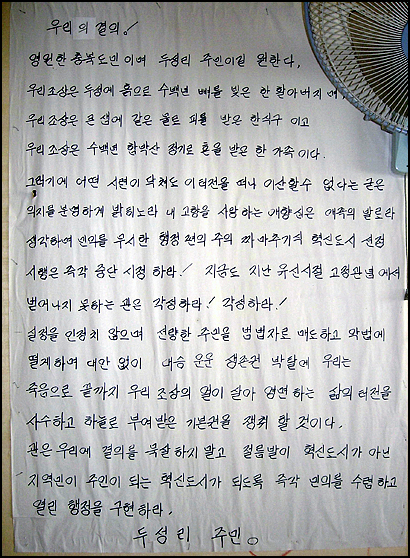 우리의 결의!
영원한 충북도민이며 두성리 주민이길 원한다,
우리조상은 두성에 흙으로 수백년 뼈를 빚은 한 할아버지며,
우리조상은 큰샘에 같은 물로 피를 받은 한식구 이고
우리조상은 수백년 함박산 정기로 혼을 받은 한 가족 이다.
그렇기에 어떤 시련이 닥쳐도 이터전을 떠나 이산할수 없다는 굳은
의지를 분명하게 밝히노라 내 고향을 사랑하는 애향심은 애족의 발로라
생각하여 민의를 무시한 행정 편의 주의 짜마추기식 혁신도시 선정
시행은 즉각 중단 시정 하라! 지금도 지난 유신시절 고정관념에서
벋어나지 못하는 관은 각성하라! 각성하라!
실정을 인정치 않으며 선량한 주민을 범법자로 매도하고 악법에
떻게하여 대안 없이 대승 운운 생존권 박탈에 우리는
죽음으로 끝까지 우리 조상의 얼이 살아 영면하는 삶의 터전을
사수하고 하늘로 부여받은 기본권을 쟁취 할 것이다.
관은 우리에 결의를 묵살하지말고 절름발이 혁신도시가 아닌
지역민이 주인이 되는 혁신도시가 되도록 즉각 민의를 수렴하고
열린 행정을 구현하라,
두성리 주민。